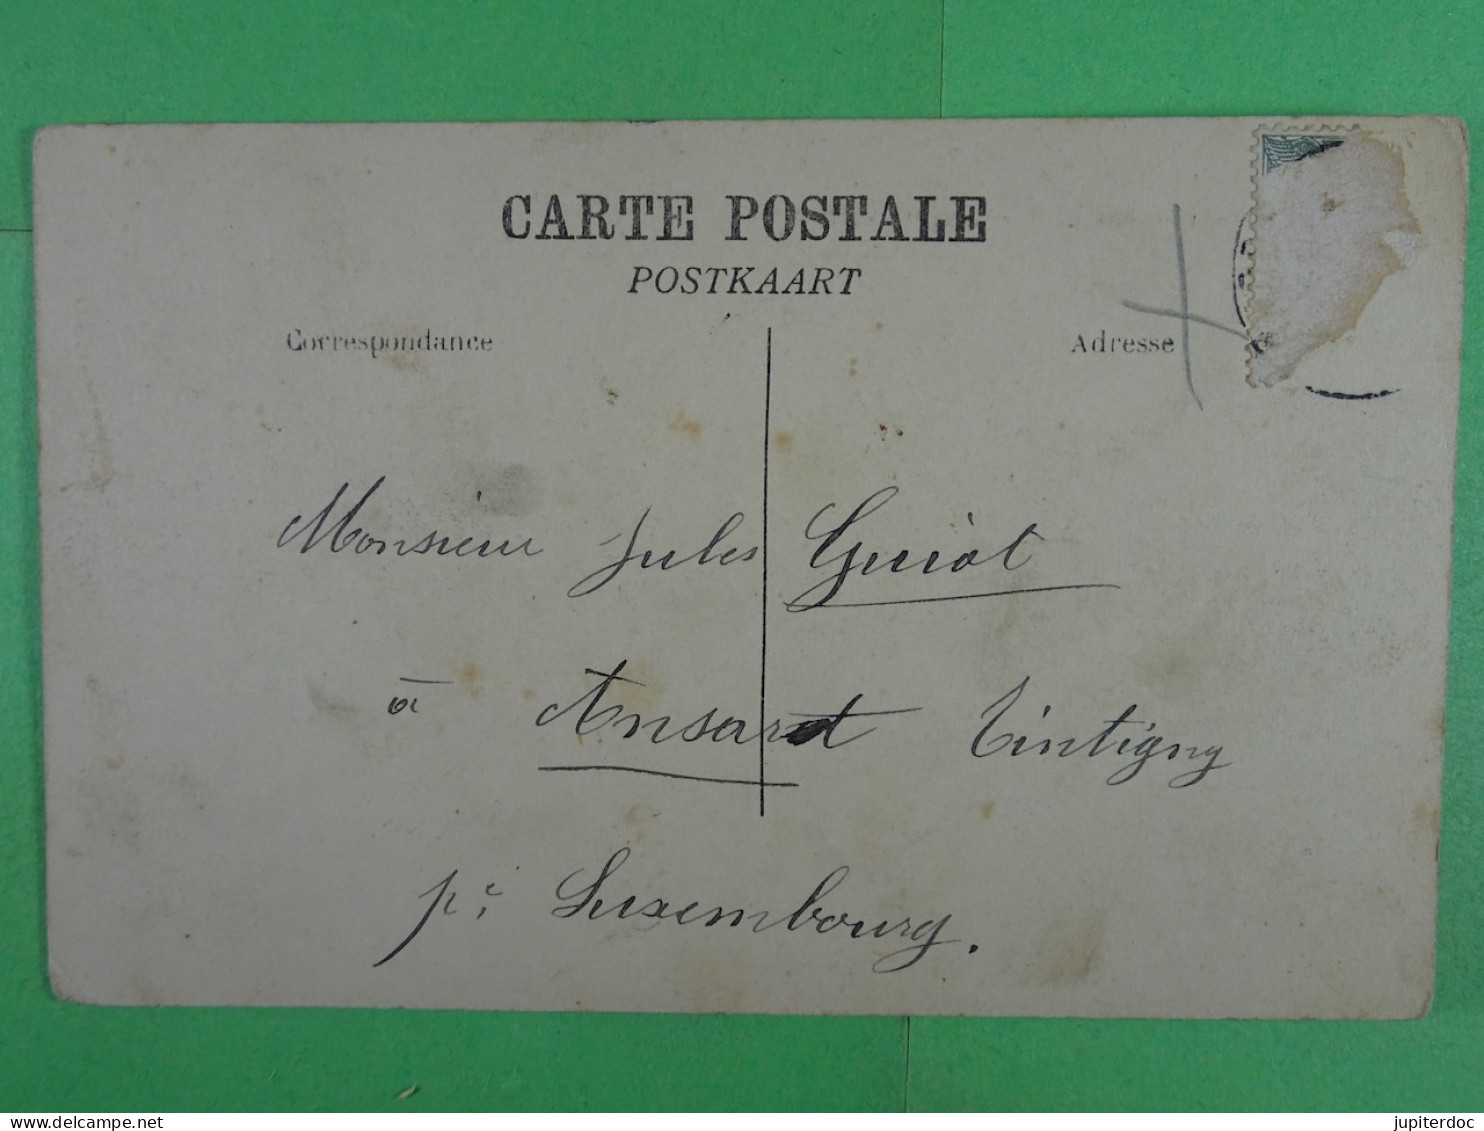 CARTE POSTALE
POSTKAART
Correspondance Adresse
Monsieur Jules Guiot
à Ansart Tintigny
pᶜ Luxembourg.
delcampe.net
jupiterdoc